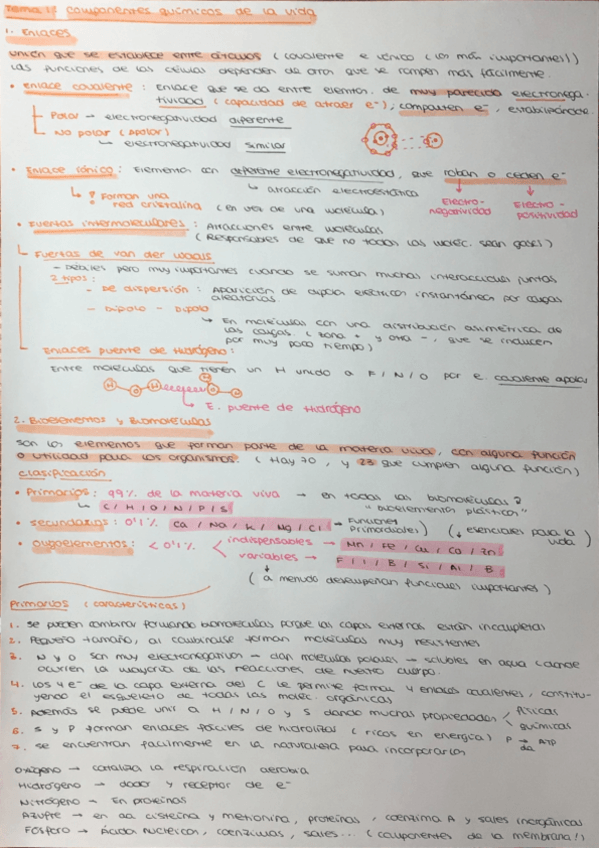 Tema 1: Componentes químicos de la vida
1. Enlaces
Unión que se establece entre átomos (covalente e iónico (los más importantes))
Las funciones de las células dependen de otros que se rompen más fácilmente.
• Enlace covalente: Enlace que se da entre elemtos. de muy parecida electronega-
tividad (capacidad de atraer e⁻); comparten e⁻, estabilizándose
Polar → electronegatividad diferente
No polar (Apolar)
↳ electronegatividad similar
• Enlace iónico: Elementos con diferente electronegatividad, que roban o ceden e⁻
↳ atracción electroestática
↳ ? Forman una red cristalina (en vez de una molécula)
Electro-negatividad
Electro-positividad
• Fuerzas intermoleculares: Atracciones entre moléculas
(Responsables de que no todas las moléc. sean gases)
Fuerzas de van der Waals
- Débiles pero muy importantes cuando se suman muchas interacciones juntas
2 tipos:
- De dispersión: Aparición de dipolos eléctricos instantáneos por cargas
aleatorias.
- Dipolo - Dipolo
↳ En moléculas con una distribución asimétrica de
las cargas. (zona + y otra -, que se inducen
por muy poco tiempo)
Enlaces puente de hidrógeno:
Entre moléculas que tienen un H unido a F/N/O por e. covalente apolar
H O H O H
↳ E. puente de Hidrógeno
2. Bioelementos y Biomoléculas
Son los elementos que forman parte de la materia viva, con alguna función
o utilidad para los organismos. (Hay 70, y 23 que cumplen alguna función)
Clasificación
• Primarios: 99% de la materia viva → en todas las biomoléculas ?
↳ C / H / O / N / P / S "bioelementos plásticos"
• Secundarios: 0'1% Ca / Na / K / Mg / Cl → Funciones Primordiales) (↓ esenciales para la vida)
• Oligoelementos: < 0'1% indispensables → Mn / Fe / Cu / Co / Zn
variables → F / I / B / Si / Al / B
(a menudo desempeñan funciones importantes)
Primarios (características)
1. Se pueden combinar formando biomoléculas porque las capas externas están incompletas
2. Pequeño tamaño, al combinarse forman moléculas muy resistentes
3. N y O son muy electronegativos → dan moléculas polares → solubles en agua (donde
ocurren la mayoría de las reacciones de nuestro cuerpo.
4. Los 4 e⁻ de la capa externa del C le permite formar 4 enlaces covalentes, constitu-
yendo el esqueleto de todas las moléc. orgánicas
5. Además se puede unir a H / N / O y S dando muchas propiedades < físicas químicas
6. S y P forman enlaces fáciles de hidrolizar (ricos en energía) P → da ATP
7. Se encuentran facilmente en la naturaleza para incorporarlos
Oxígeno → cataliza la respiración aerobia
Hidrógeno → dador y receptor de e⁻
Nitrógeno → En proteínas
Azufre → en aa cisteína y metionina, proteínas, coenzima A y sales inorgánicas
Fósforo → Ácidos nucleicos, coenzimas, sales... (componentes de la membrana!)